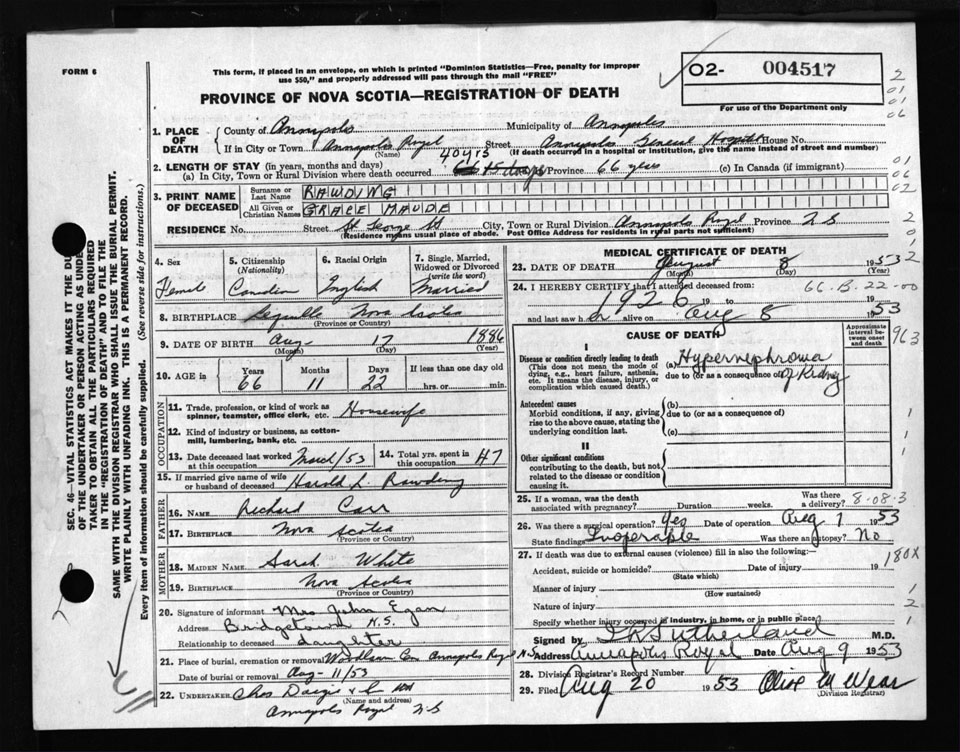 FORM 6
This form, if placed in an envelope, on which is printed "Dominion Statistics—Free, penalty for improper
use $50," and properly addressed will pass through the mail "FREE"
O2- 004517
For use of the Department only
PROVINCE OF NOVA SCOTIA—REGISTRATION OF DEATH
2
01
01
06
SEC. 46—VITAL STATISTICS ACT MAKES IT THE DU
OF THE UNDERTAKER OR PERSON ACTING AS UNDE
TAKER TO OBTAIN ALL THE PARTICULARS REQUIRED
IN THE "REGISTRATION OF DEATH" AND TO FILE THE
SAME WITH THE DIVISION REGISTRAR WHO SHALL ISSUE THE BURIAL PERMIT.
WRITE PLAINLY WITH UNFADING INK. THIS IS A PERMANENT RECORD.
Every item of information should be carefully supplied. (See reverse side for instructions.)
1. PLACE OF DEATH
County of Annapolis Municipality of Annapolis
If in City or Town Annapolis Royal Street Annapolis General Hospital House No.
(Name) (If death occurred in a hospital or institution, give the name instead of street and number)
2. LENGTH OF STAY (in years, months and days) 40 yrs
(a) In City, Town or Rural Division where death occurred 15 days Province 66 years (c) In Canada (if immigrant)
01
06
02
3. PRINT NAME OF DECEASED
Surname or Last Name RAWDING
All Given or Christian Names GRACE MAUDE
RESIDENCE No. Street St George St City, Town or Rural Division Annapolis Royal Province N.S
(Residence means usual place of abode. Post Office Address for residents in rural parts not sufficient)
2
0
1
2
4. Sex Female
5. Citizenship (Nationality) Canadian
6. Racial Origin English
7. Single, Married, Widowed or Divorced (write the word) Married
8. BIRTHPLACE Nova Scotia
(Province or Country)
9. DATE OF BIRTH Aug 17 1886
(Month) (Day) (Year)
10. AGE in Years Months Days If less than one day old
66 11 22 hrs. or min.
OCCUPATION
11. Trade, profession or kind of work as
spinner, teamster, office clerk, etc. Housewife
12. Kind of industry or business, as cotton-
mill, lumbering, bank, etc.
13. Date deceased last worked at this occupation March/53
14. Total yrs. spent in this occupation 47
15. If married give name of wife
or husband of deceased Harold L. Rawding
FATHER
16. Name Richard Carr
17. Birthplace Nova Scotia
(Province or Country)
MOTHER
18. MAIDEN NAME Sarah White
19. BIRTHPLACE Nova Scotia
(Province or Country)
20. Signature of informant Mrs John Egan
Address Bridgetown N.S.
Relationship to deceased daughter
21. Place of burial, cremation or removal Woodlawn Cem Annapolis Royal N.S
Date of burial or removal Aug-11/53
22. UNDERTAKER Chas
(Name and address)
Annapolis Royal N.S
MEDICAL CERTIFICATE OF DEATH
23. DATE OF DEATH August 8 1953
(Month) (Day) (Year)
24. I HEREBY CERTIFY that I attended deceased from 66.B.22-00
1926 19 to
and last saw h alive on Aug 8 1953
CAUSE OF DEATH
Approximate interval between onset and death
963
I
Disease or condition directly leading to death (a) Hypernephroma
(This does not mean the mode of dying, e.g., heart failure, asthenia, etc. It means the disease, injury, or complication which caused death.)
due to (or as a consequence of) of Kidney
Antecedent causes (b)
Morbid conditions, if any, giving rise to the above cause, stating the underlying condition last.
due to (or as a consequence of)
(c)
II
Other significant conditions
contributing to the death, but not
related to the disease or condition
causing it.
1
1
25. If a woman, was the death
associated with pregnancy? Duration weeks. Was there a delivery? 8-08-3
26. Was there a surgical operation? Yes Date of operation Aug 1 1953
State findings Inoperable Was there an autopsy? No
27. If death was due to external causes (violence) fill in also the following:—
180X
Accident, suicide or homicide? Date of injury 19
(State which)
Manner of injury
(How sustained)
1
Nature of injury
2
Specify whether injury occurred in industry, in home, or in public place?
1
Signed by Sutherland M.D.
Address Annapolis Royal Date Aug 9 1953
28. Division Registrar's Record Number
29. Filed Aug 20 1953
(Division Registrar)